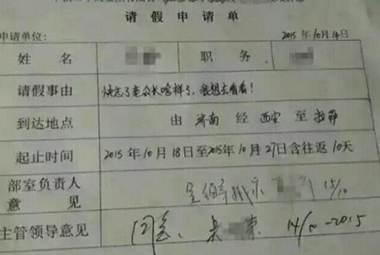 请假申请单
申请单位: 2015年10月14日
姓名 职务
请假事由 快忘了老公长啥样了,我想去看看!
到达地点 由 济南 经 西安 至 拉萨
起止时间 2015年10月18日至2015年10月27日含往返10天
部室负责人
意见 15/10
主管领导意见 同意、 14/10-2015